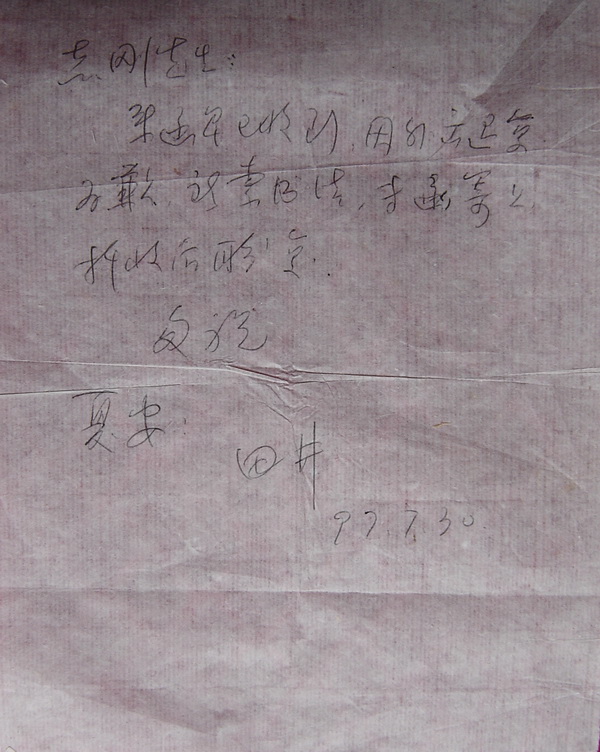 志刚先生：
来函早已收到，因外出迟复
为歉，所索书法，寿函寄上
折收后即复。
匆祝
夏安：
田井
97.7.30.